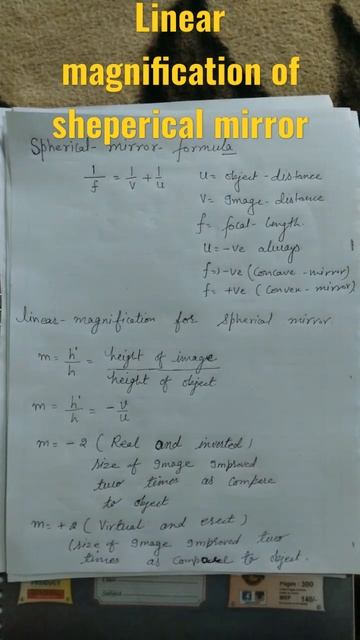 Linear
magnification of
sheperical mirror
Spherical - mirror - formula
1/f = 1/v + 1/u
u = object - distance
V = Image - distance
f = focal - length
u = -ve always
f = -ve (Concave - mirror)
f = +ve (Convex - mirror)
linear - magnification for Spherical mirror
m = h'/h = height of image / height of object
m = h'/h = -v/u
m = -2 (Real and inverted)
size of Image Improved
two times as compere
to object
m = +2 (Virtual and erect)
(size of Image Improved two
times as compared to object.
PRODUCT
Class
Subject
Pages : 300
MRP 140/-